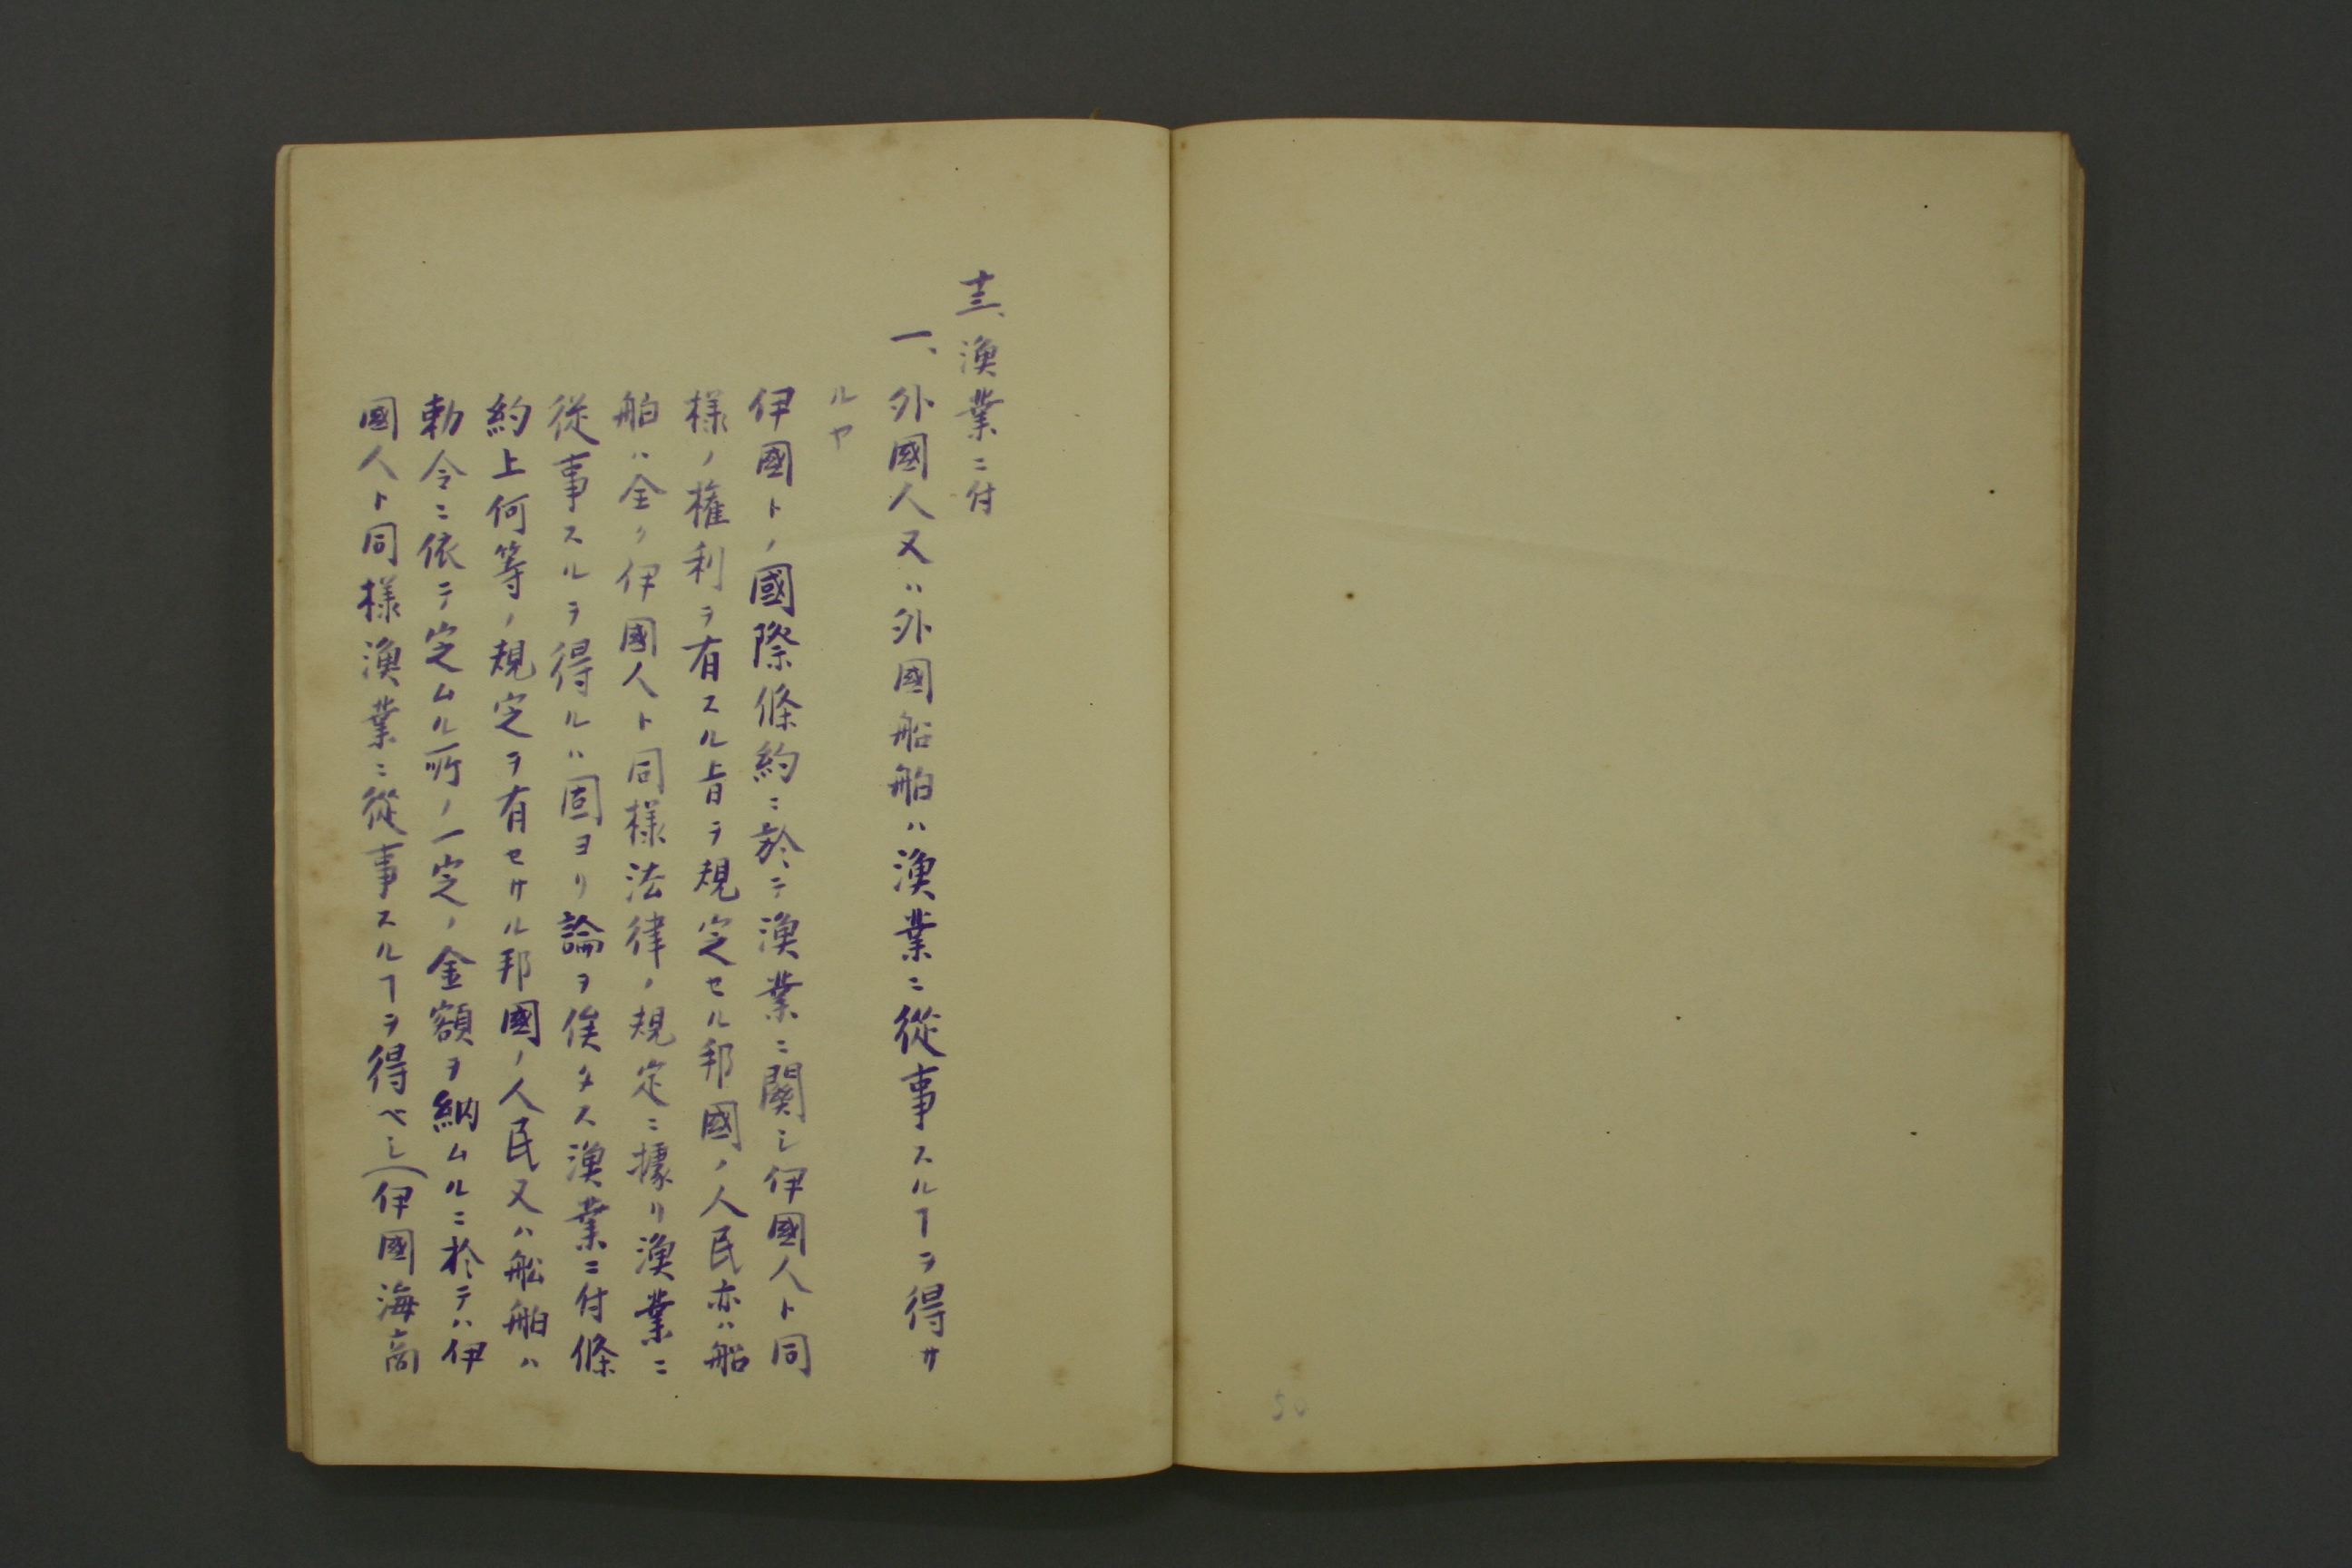 十三、漁業ニ付
一、外國人又ハ外國船舶ハ漁業ニ從事スルヿヲ得サ
ルヤ
伊國トノ國際條約ニ於テ漁業ニ關シ伊國人ト同
様ノ權利ヲ有スル旨ヲ規定セル邦國ノ人民亦ハ船
舶ハ全ク伊國人ト同様法律ノ規定ニ據リ漁業ニ
從事スルヲ得ルハ固ヨリ論ヲ俟タス漁業ニ付條
約上何等ノ規定ヲ有セサル邦國ノ人民又ハ船舶ハ
勅令ニ依テ定ムル所ノ一定ノ金額ヲ納ムルニ於テハ伊
國人ト同様漁業ニ從事スルヿヲ得ベシ(伊國海商
50